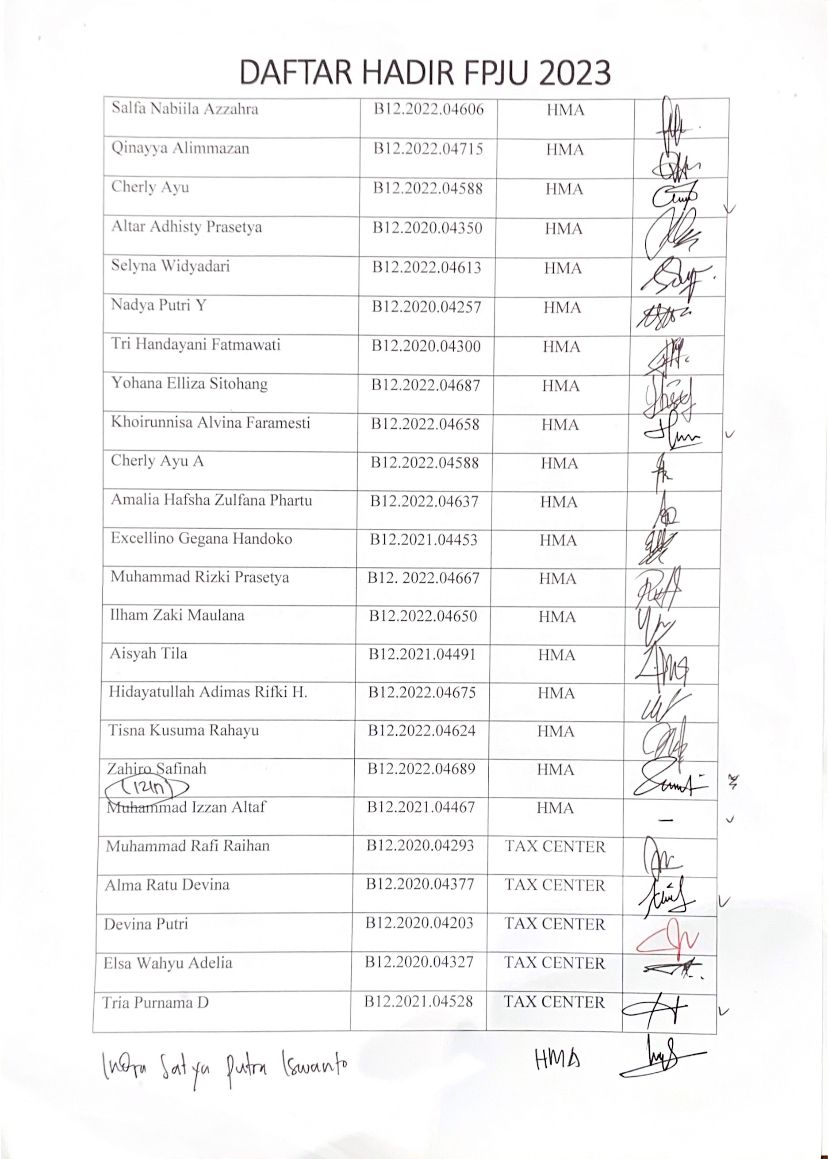 DAFTAR HADIR FPJU 2023
Salfa Nabiila Azzahra B12.2022.04606 HMA
Qinayya Alimmazan B12.2022.04715 HMA
Cherly Ayu B12.2022.04588 HMA
Altar Adhisty Prasetya B12.2020.04350 HMA
Selyna Widyadari B12.2022.04613 HMA
Nadya Putri Y B12.2020.04257 HMA
Tri Handayani Fatmawati B12.2020.04300 HMA
Yohana Elliza Sitohang B12.2022.04687 HMA
Khoirunnisa Alvina Faramesti B12.2022.04658 HMA
Cherly Ayu A B12.2022.04588 HMA
Amalia Hafsha Zulfana Phartu B12.2022.04637 HMA
Excellino Gegana Handoko B12.2021.04453 HMA
Muhammad Rizki Prasetya B12. 2022.04667 HMA
Ilham Zaki Maulana B12.2022.04650 HMA
Aisyah Tila B12.2021.04491 HMA
Hidayatullah Adimas Rifki H. B12.2022.04675 HMA
Tisna Kusuma Rahayu B12.2022.04624 HMA
Zahiro Safinah B12.2022.04689 HMA
(izin)
Muhammad Izzan Altaf B12.2021.04467 HMA –
Muhammad Rafi Raihan B12.2020.04293 TAX CENTER
Alma Ratu Devina B12.2020.04377 TAX CENTER
Devina Putri B12.2020.04203 TAX CENTER
Elsa Wahyu Adelia B12.2020.04327 TAX CENTER
Tria Purnama D B12.2021.04528 TAX CENTER
Indra Satya Putra Iswanto HMA